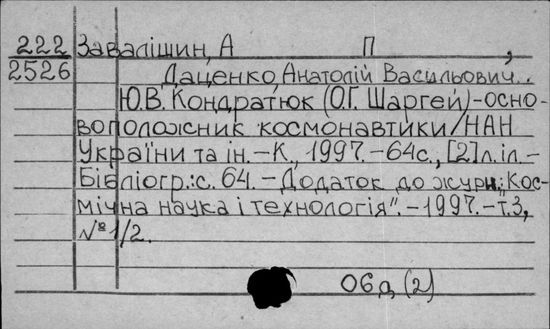 222 Завалішин, А П ,
2526 Даценко, Анатолій Васильович..
Ю.В. Кондратюк (О.Г. Шаргей)-осно-
воположник космонавтики/НАН
України та ін.-К., 1997.-64с., [2]л.іл.-
Бібліогр.:с. 64.-Додаток до журн.„Кос-
мічна наука і технологія".-1997.-т.3,
№1/2.
06д (2)